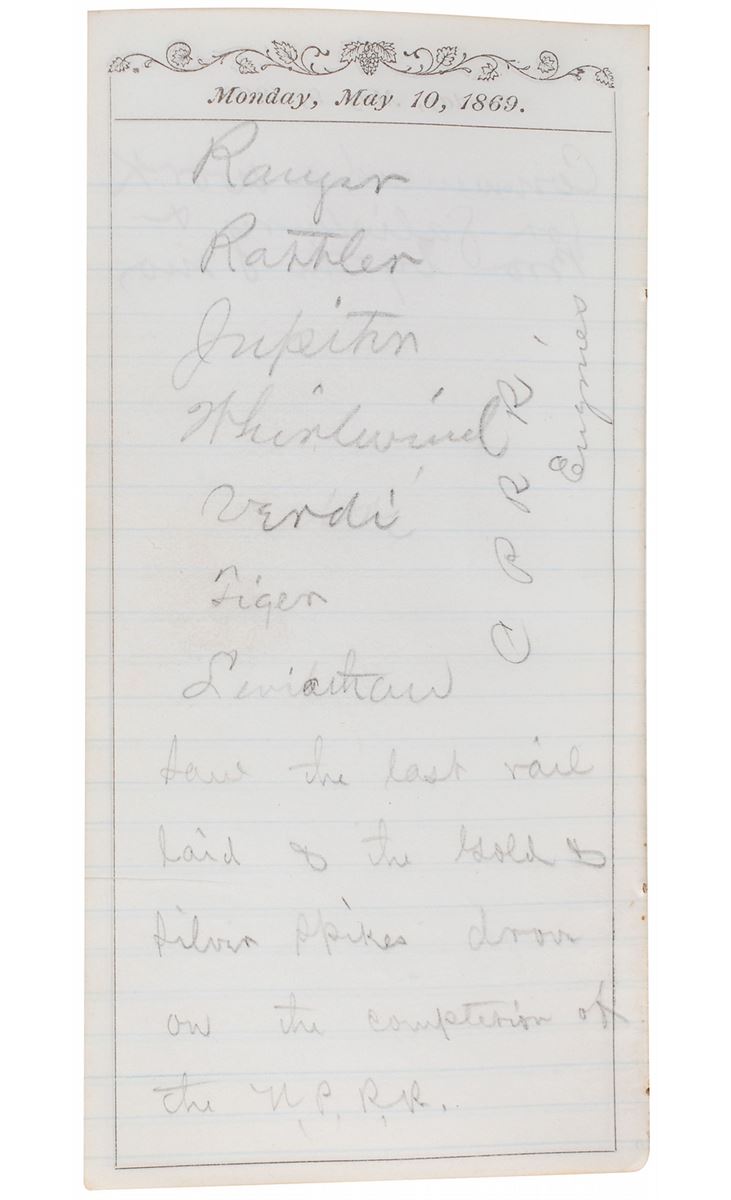 Monday, May 10, 1869.
Ranger
Rattler
Jupiter
Whirlwind
Verdi
Tiger
Leviathan
C P R R
Engines
Saw the last rail
laid & the Gold &
Silver Spikes drove
on the completion of
the N.P.R.R.